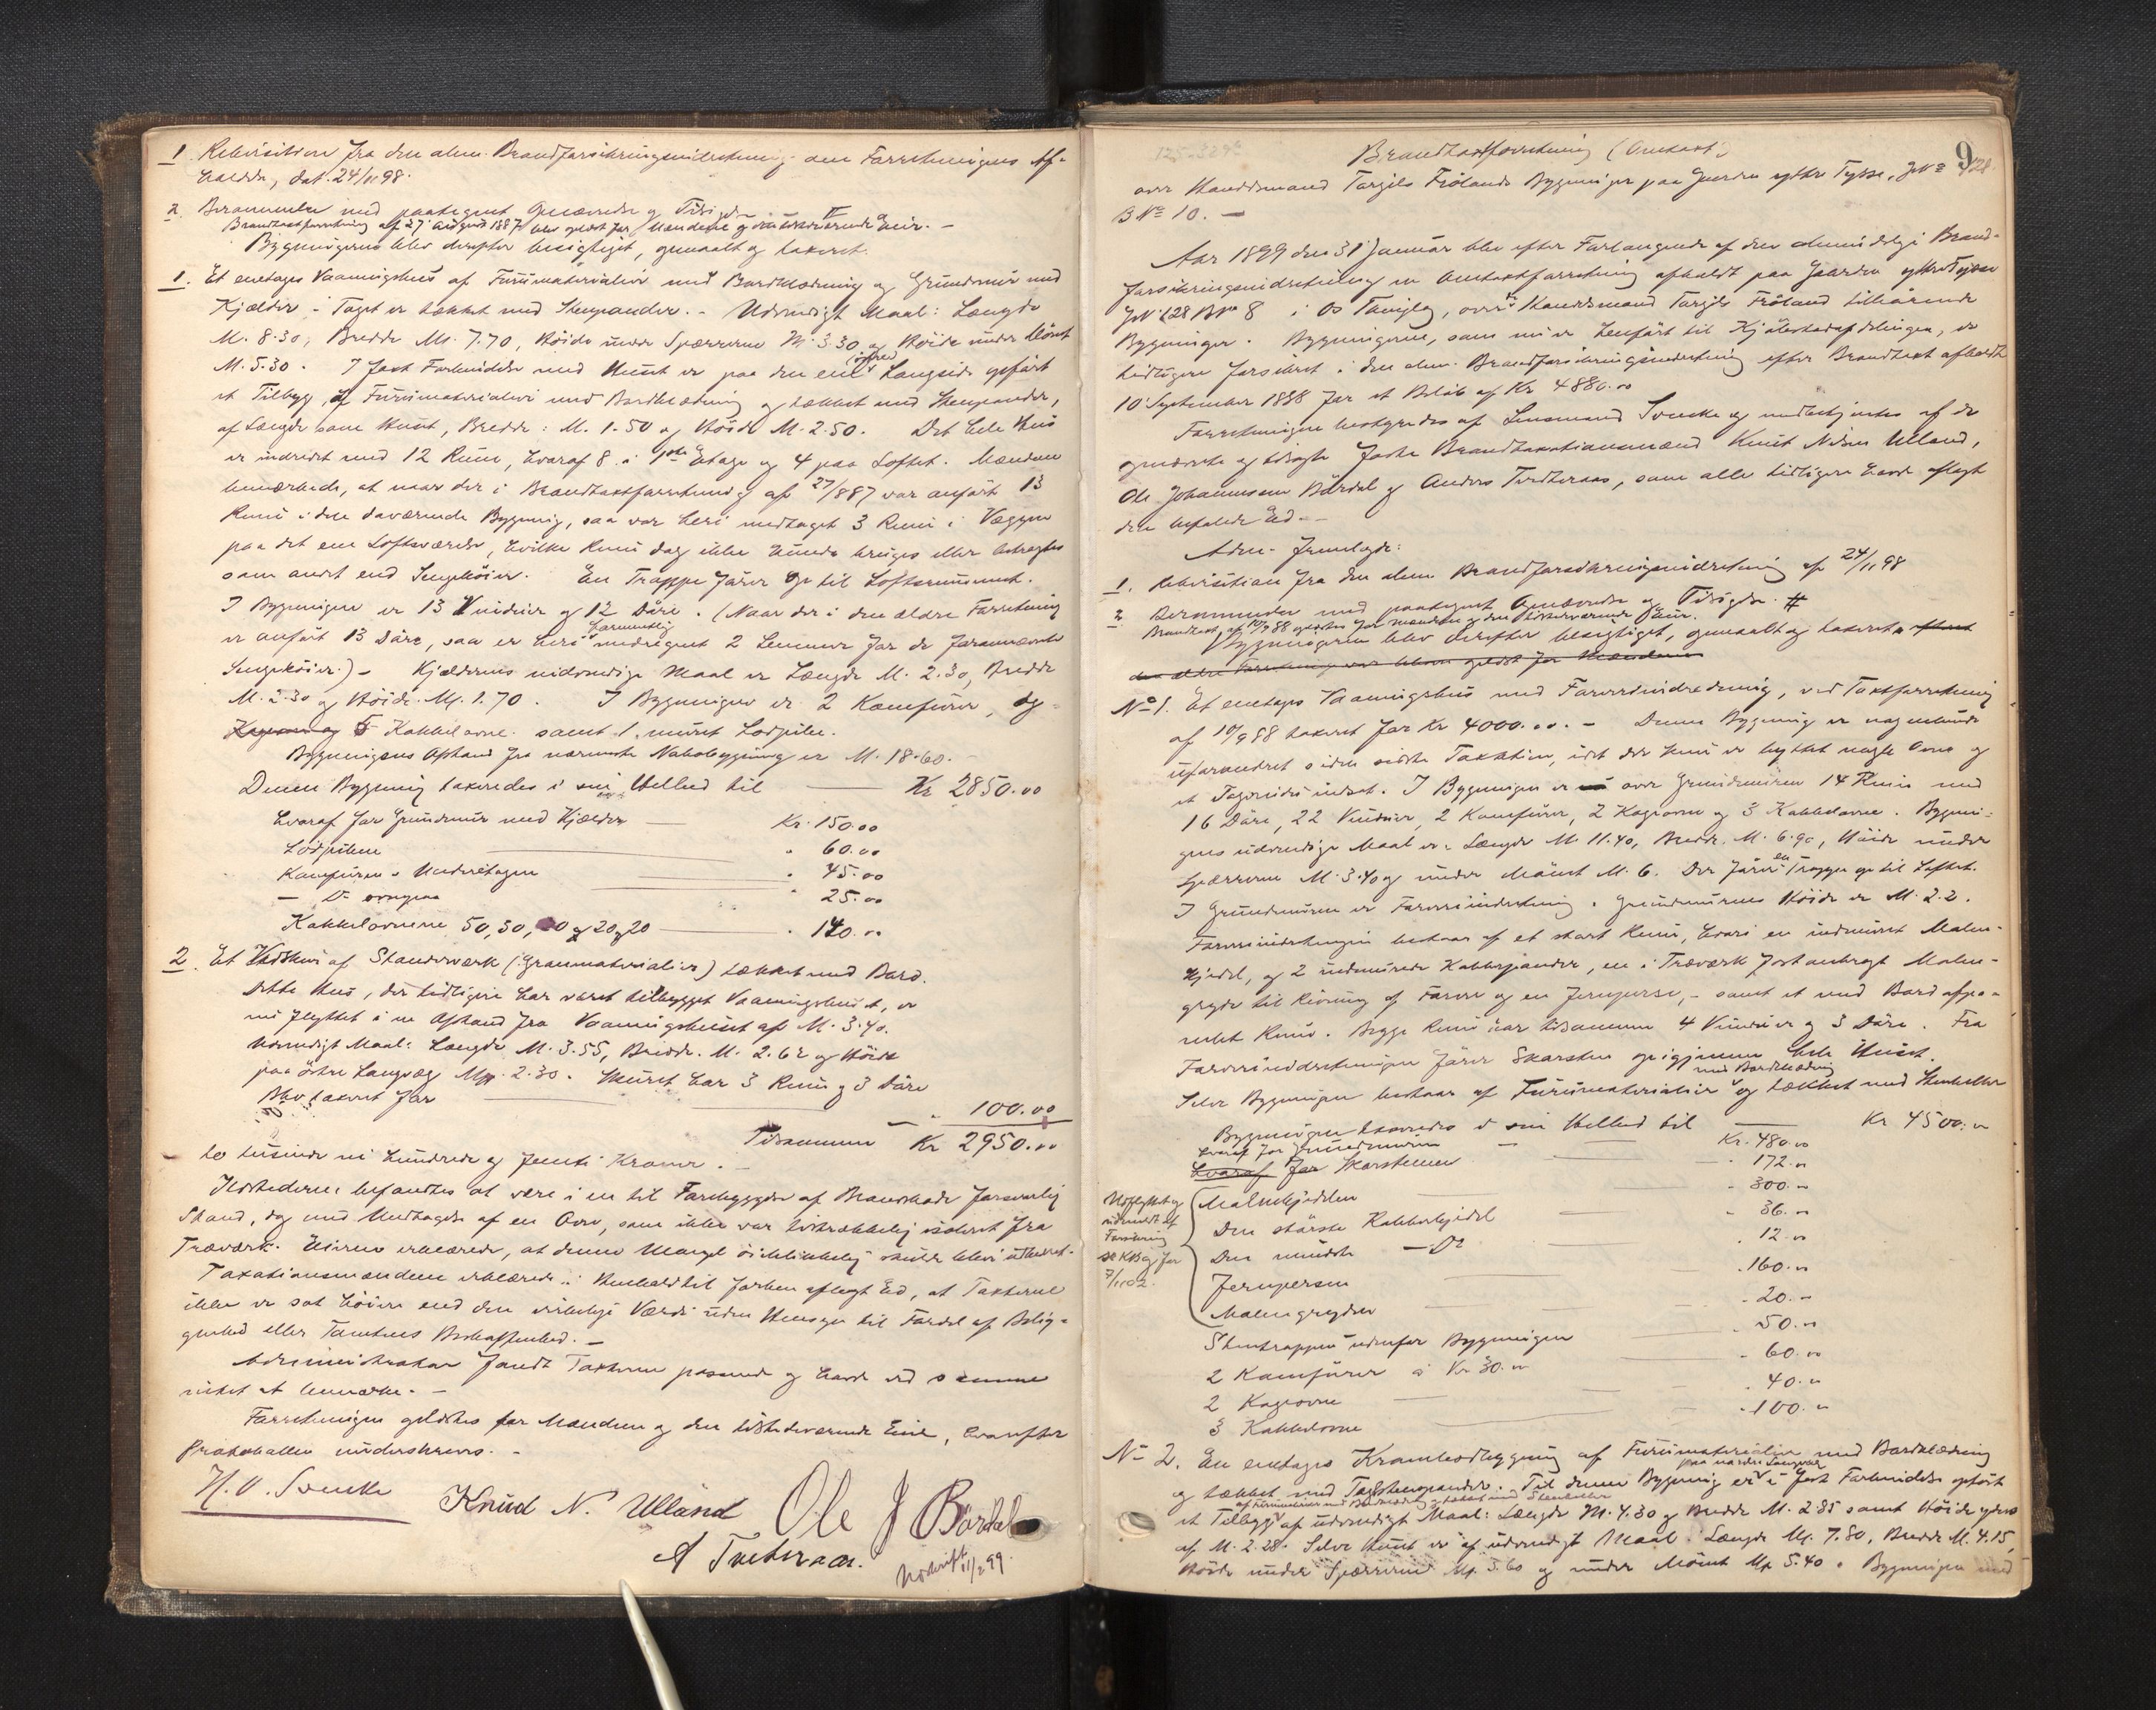 1. Rekvisition fra den alm. Brandforsikringsindretning om Forretningens Af-
holdelse, dat. 24/11 98.
2. Berammelse med paategnet Opnævnelse og Tilsigelse.
Brandtaxtforretning af 27 August 1887 blev oplæst for Mændene og den tilstedeværende Eier. -
Bygningerne blev derefter besigtiget, opmaalt og taxeret.
1. Et enetages Vaaningshus af Furumaterialier med Bordklædning og Grundmur med
Kjælder. - Taget er tækket med Stenpander. - Udvendigt Maal: Længde
M. 8.30, Bredde M. 7.70, Höide under Spærrerne M. 3.30 og Höide under Mönet
M. 5.30. I fast Forbindelse med Huset er paa den ene (öpre) Langside opfört
et Tilbyg, af Furumaterialier med Bordklædning og tækket med Stenpander,
af Længde som Huset, Bredde: M. 1.50 og Höide M. 2.50. Det hele Hus
er indredet med 12 Rum, hvoraf 8 i 1ste Etage og 4 paa Loftet. Mændene
bemærkede, at naar der i Brandtaxtforretning af 27/8 87 var anfört 13
Rum i den daværende Bygning, saa var heri medtaget 3 Rum i Væggen
paa det ene Loftsværelse, hvilke Rum dog ikke kunde bruges eller betragtes
som andet end Sengeköier. En Trappe förer op til Loftsrummet.
I Bygningen er 13 Vinduer og 12 Döre. (Naar der i den ældre Forretning
er anfört 13 Döre, saa er heri formentlig medregnet 2 Lemmer for de fornævnte
Sengeköier.) - Kjælderens indvendige Maal er Længde M. 2.30, Bredde
M. 2.30 og Höide M. 1.70. I Bygningen er 2 Komfurer, og
5 Kakkelovne samt 1 muret Lodpibe.
Bygningens Afstand fra nærmeste Nabobygning er M. 18.60.
Denne Bygning taxeredes i sin Helhed til Kr 2850.00
hvoraf for Grundmur med Kjælder Kr. 150.00
Lodpiben " 60.00
Komfuren i Underetagen " 45.00
— Do ovenpaa " 25.00
Kakkelovnene 50, 30, 20 og 20 " 140.00
2. Et Vedskur af Standerværk (Granmaterialier) tækket med Bord.
Dette Hus, der tidligere har været tilbygget Vaaningshuset, er
nu flyttet i en Afstand fra Vaaningshuset af M. 3.40.
Udvendigt Maal: Længde M. 3.55, Bredde M. 2.62 og Höide
paa östre Langvæg M. 2.30. Skuret har 3 Rum og 3 Döre
Blev taxeret for " 100.00
Tilsammen Kr 2950.00
to tusinde ni hundrede og femti Kroner. -
Ildstederne befandtes at være i en til Forebyggelse af Brandskade forsvarlig
Stand, dog med Undtagelse af en Ovn, som ikke var tilstrækkelig isoleret fra
Træværk. Eieren erklærede, at denne Mangel öieblikkelig skulde blive udbedret.
Taxationsmændene erklærede i Henhold til forhen aflagt Ed, at Taxterne
ikke er sat höiere end den virkelige Værdi uden Hensyn til Fordel af Belig-
genhed eller Tomtens Beskaffenhed. -
Administrator fandt Taxterne passende og havde ved samme
intet at bemærke. -
Forretningen oplæstes for Mændene og den tilstedeværende Eier, hvorefter
Protokollen underskreves. -
H. O. Svenke Knud N. Ulland Ole J Bördal
A Tveteraas.
Udskrift 11/2 99.
9
Brandtaxtforretning (Omtaxt)
over Handelsmand Torgils Frölands Bygninger paa Gaarden ystre Tysse, GNo 128.
BNo 10. —
Aar 1899 den 31 Januar blev efter Forlangende af den almindelige Brand-
forsikringsindretning en Omtaxtforretning afholdt paa Gaarden ystre Tysse
GNo 128 BNo 8 i Os Thinglag, over Handelsmand Torgils Fröland tilhörende
Bygninger. Bygningerne, som nu er henfört til Kjöbstadafdelingen, er
tidligere forsikret i den alm. Brandforsikringsindretning efter Brandtaxt afholdt
10 September 1888 for et Belöb af Kr 4880.00
Forretningen bestyredes af Lensmand Svenke og medbetjentes af de
opnævnte og tilsagte faste Brandtaxationsmænd Knut Nilsen Ulland,
Ole Johannessen Bördal og Anders Tveteraas, som alle tidligere havde aflagt
den befalede Ed. -
Adm. fremlagde:
1. Rekvisition fra den alm Brandforsikringsindretning af 24/11 98
2. Berammelse med paategnet Opnævnelse og Tilsigelse. #
Brandtaxt af 10/9 88 oplæstes for Mændene og den tilstedeværende Eier.
Bygningerne blev derefter besigtiget, opmaalt og taxeret,
den ældre Forretning var bleven oplæst for Mændene
No 1. Et enetages Vaaningshus med Farveriindretning, ved Taxtforretning
af 10/9 88 taxeret for Kr 4000.00. - Denne Bygning er nogenlunde
uforandret siden sidste Taxation, idet der kun er byttet nogle Ovne og
et Tagvindu indsat. I Bygningen er over Grundmuren 14 Rum med
16 Döre, 22 Vinduer, 2 Komfurer, 2 Kogeovne og 3 Kakkelovne. Bygnin-
gens udvendige Maal er: Længde M. 11.40, Bredde M. 6.90, Höide under
Spærrerne M. 3.40 og under Mönet M. 6. Der förer en Trappe op til Loftet.
I Grundmuren er Farveriindretning. Grundmurens Höide er M. 2.2.
Farveriindretningen bestaar af et stort Rum, hvori en indmuret Malm-
kjedel, og 2 indmurede Kobberpander, en i Træværk fastanbragt Malm-
gryde til Rivning af Farve og en Jernpresse, - samt et med Bord afpa-
nelet Rum. Begge Rum har tilsammen 4 Vinduer og 3 Döre. Fra
Farveriindretningen förer Skorsten op igjennem hele Huset.
Selve Bygningen bestaar af Furumaterialier med Bordklædning og tækket med Stenheller
Bygningen taxeredes i sin Helhed til Kr 4500.00
hvoraf for Grundmuren Kr. 480.00
hvoraf for Skorstenen " 172.00
Malmkjedelen " 300.00
Den störste Kobberkjedel " 36.00
Den mindste — Do " 12.00
Jernpersen " 160.00
Malmgryden " 20.00
Udflyttet og
udmeldt af
Forsikring
se KBog for
7/11 02.
Stentrappen udenfor Bygningen " 50.00
2 Komfurer à Kr 30.00 " 60.00
2 Kogeovne " 40.00
3 Kakkelovne " 100.00
No 2. En enetages Krambodbygning af Furumaterialier med Bordklædning
og tækket med Tagstenspander. Til denne Bygning er paa nordre Langvæg i fast Forbindelse opfört
af Furumaterialier med Bordklædning og tækket med Stenheller
et Tilbyg af udvendigt Maal: Længde M. 4.30 og Bredde M. 2.85 samt Höide ydrest
af M. 2.28. Selve Huset er af udvendigt Maal: Længde M. 7.80, Bredde M. 4.15,
Höide under Spærrerne M. 3.60 og under Mönet M. 5.40. Bygningen med